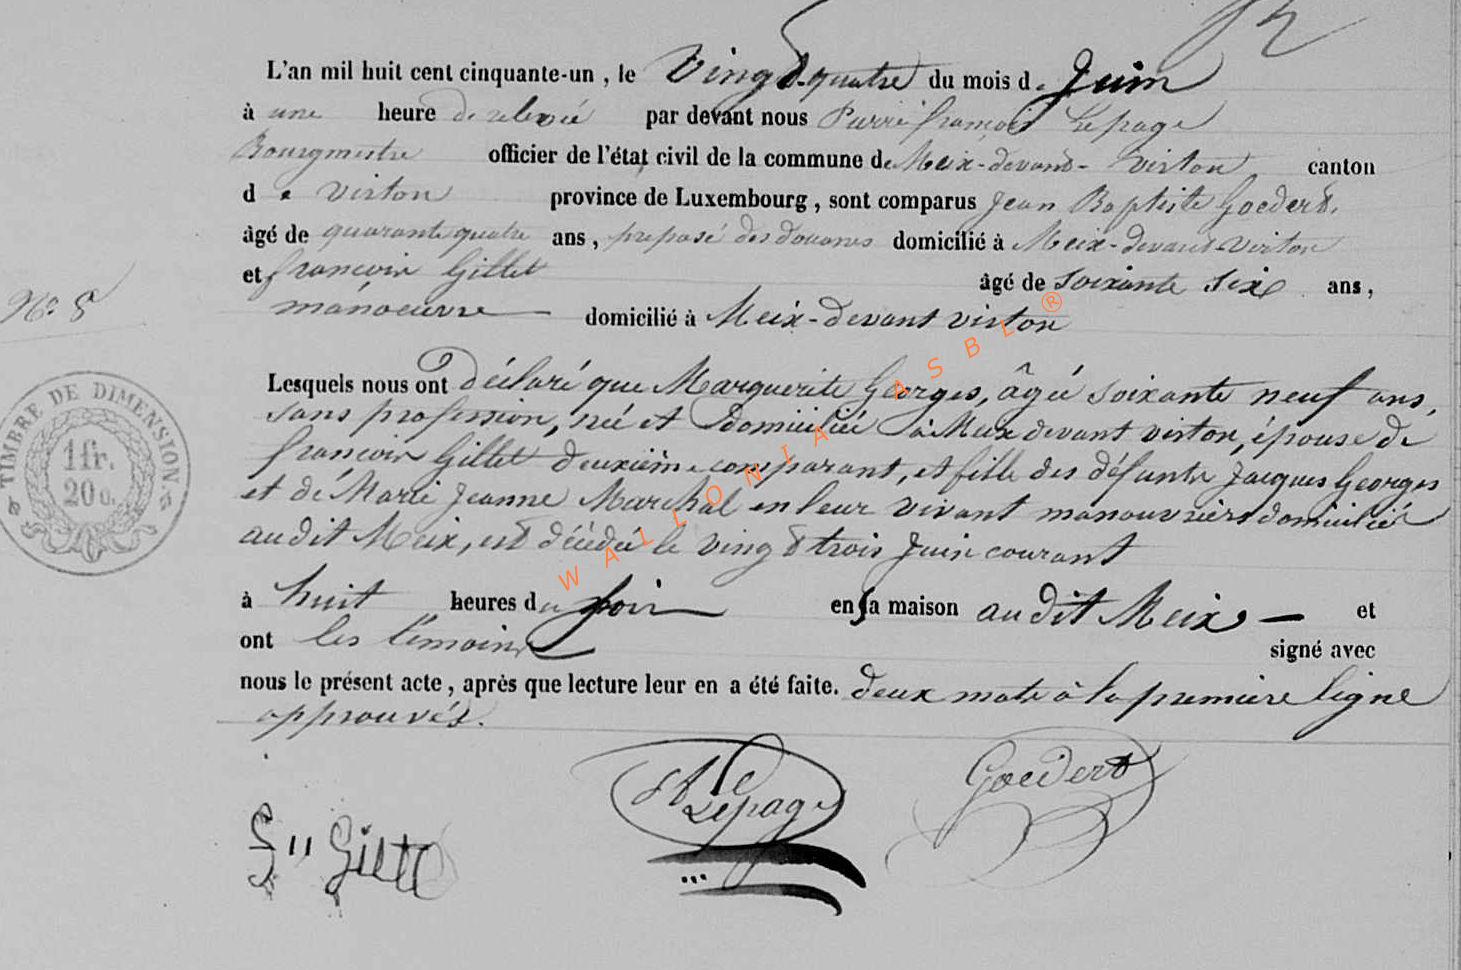 L'an mil huit cent cinquante-un, le Vingt-quatre du mois de Juin
à une heure de relevée par devant nous Pierre françois Lepage
Bourgmestre officier de l'état civil de la commune de Meix-devant-virton canton
de virton province de Luxembourg, sont comparus Jean Baptiste Goedert,
âgé de quarante quatre ans, preposé des douanes domicilié à Meix-devant-virton
et françois Gillet âgé de soixante six ans,
N° 8
manoeuvre domicilié à Meix-devant virton
Lesquels nous ont déclaré que Marguerite Georges, âgée soixante neuf ans,
sans profession, née et domiciliée à Meix devant virton, épouse de
françois Gillet deuxième comparant, et fille des défunts Jacques Georges
et de Marie Jeanne Marchal en leur vivant manouvriers domiciliés
audit Meix, est décédée le vingt trois Juin courant
à huit heures du soir en sa maison audit Meix et
ont les témoins signé avec
nous le présent acte, après que lecture leur en a été faite. deux mots à la première ligne
approuvés.
TIMBRE DE DIMENSION
1fr.
20c.
WALLONIA ASBL ®
Lepage
Goedert